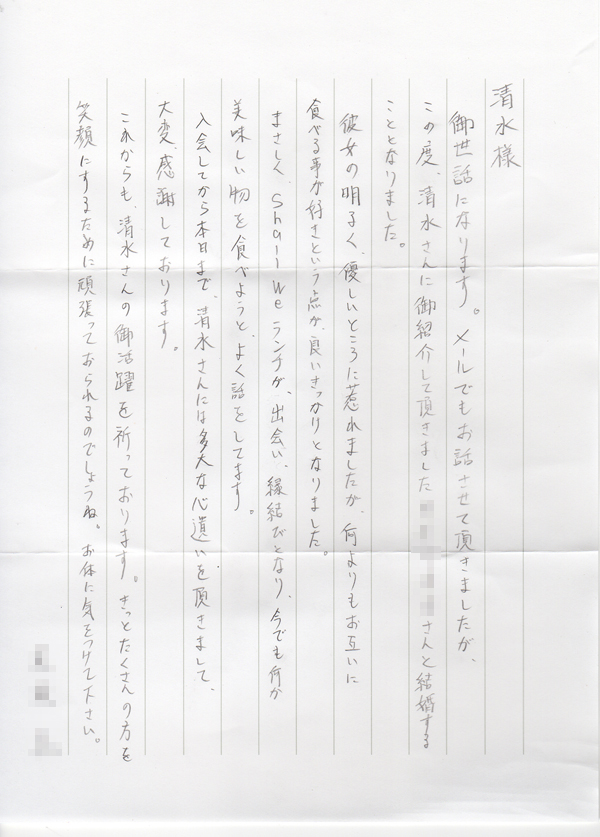 清水様
御世話になります。メールでもお話させて頂きましたが、
この度、清水さんに御紹介して頂きました さんと結婚する
こととなりました。
彼女の明るく、優しいところに惹れましたが、何よりもお互いに
食べる事が好きという点が、良いきっかりとなりました。
まさしく、Shall We ランチが、出会い、縁結びとなり、今でも何か
美味しい物を食べようと、よく話をしてます。
入会してから本日まで、清水さんには多大な心遣いを頂きまして、
大変、感謝しております。
これからも、清水さんの御活躍を祈っております。きっとたくさんの方を
笑顔にするために頑張っておられるのでしょうね。お体に気をつけて下さい。